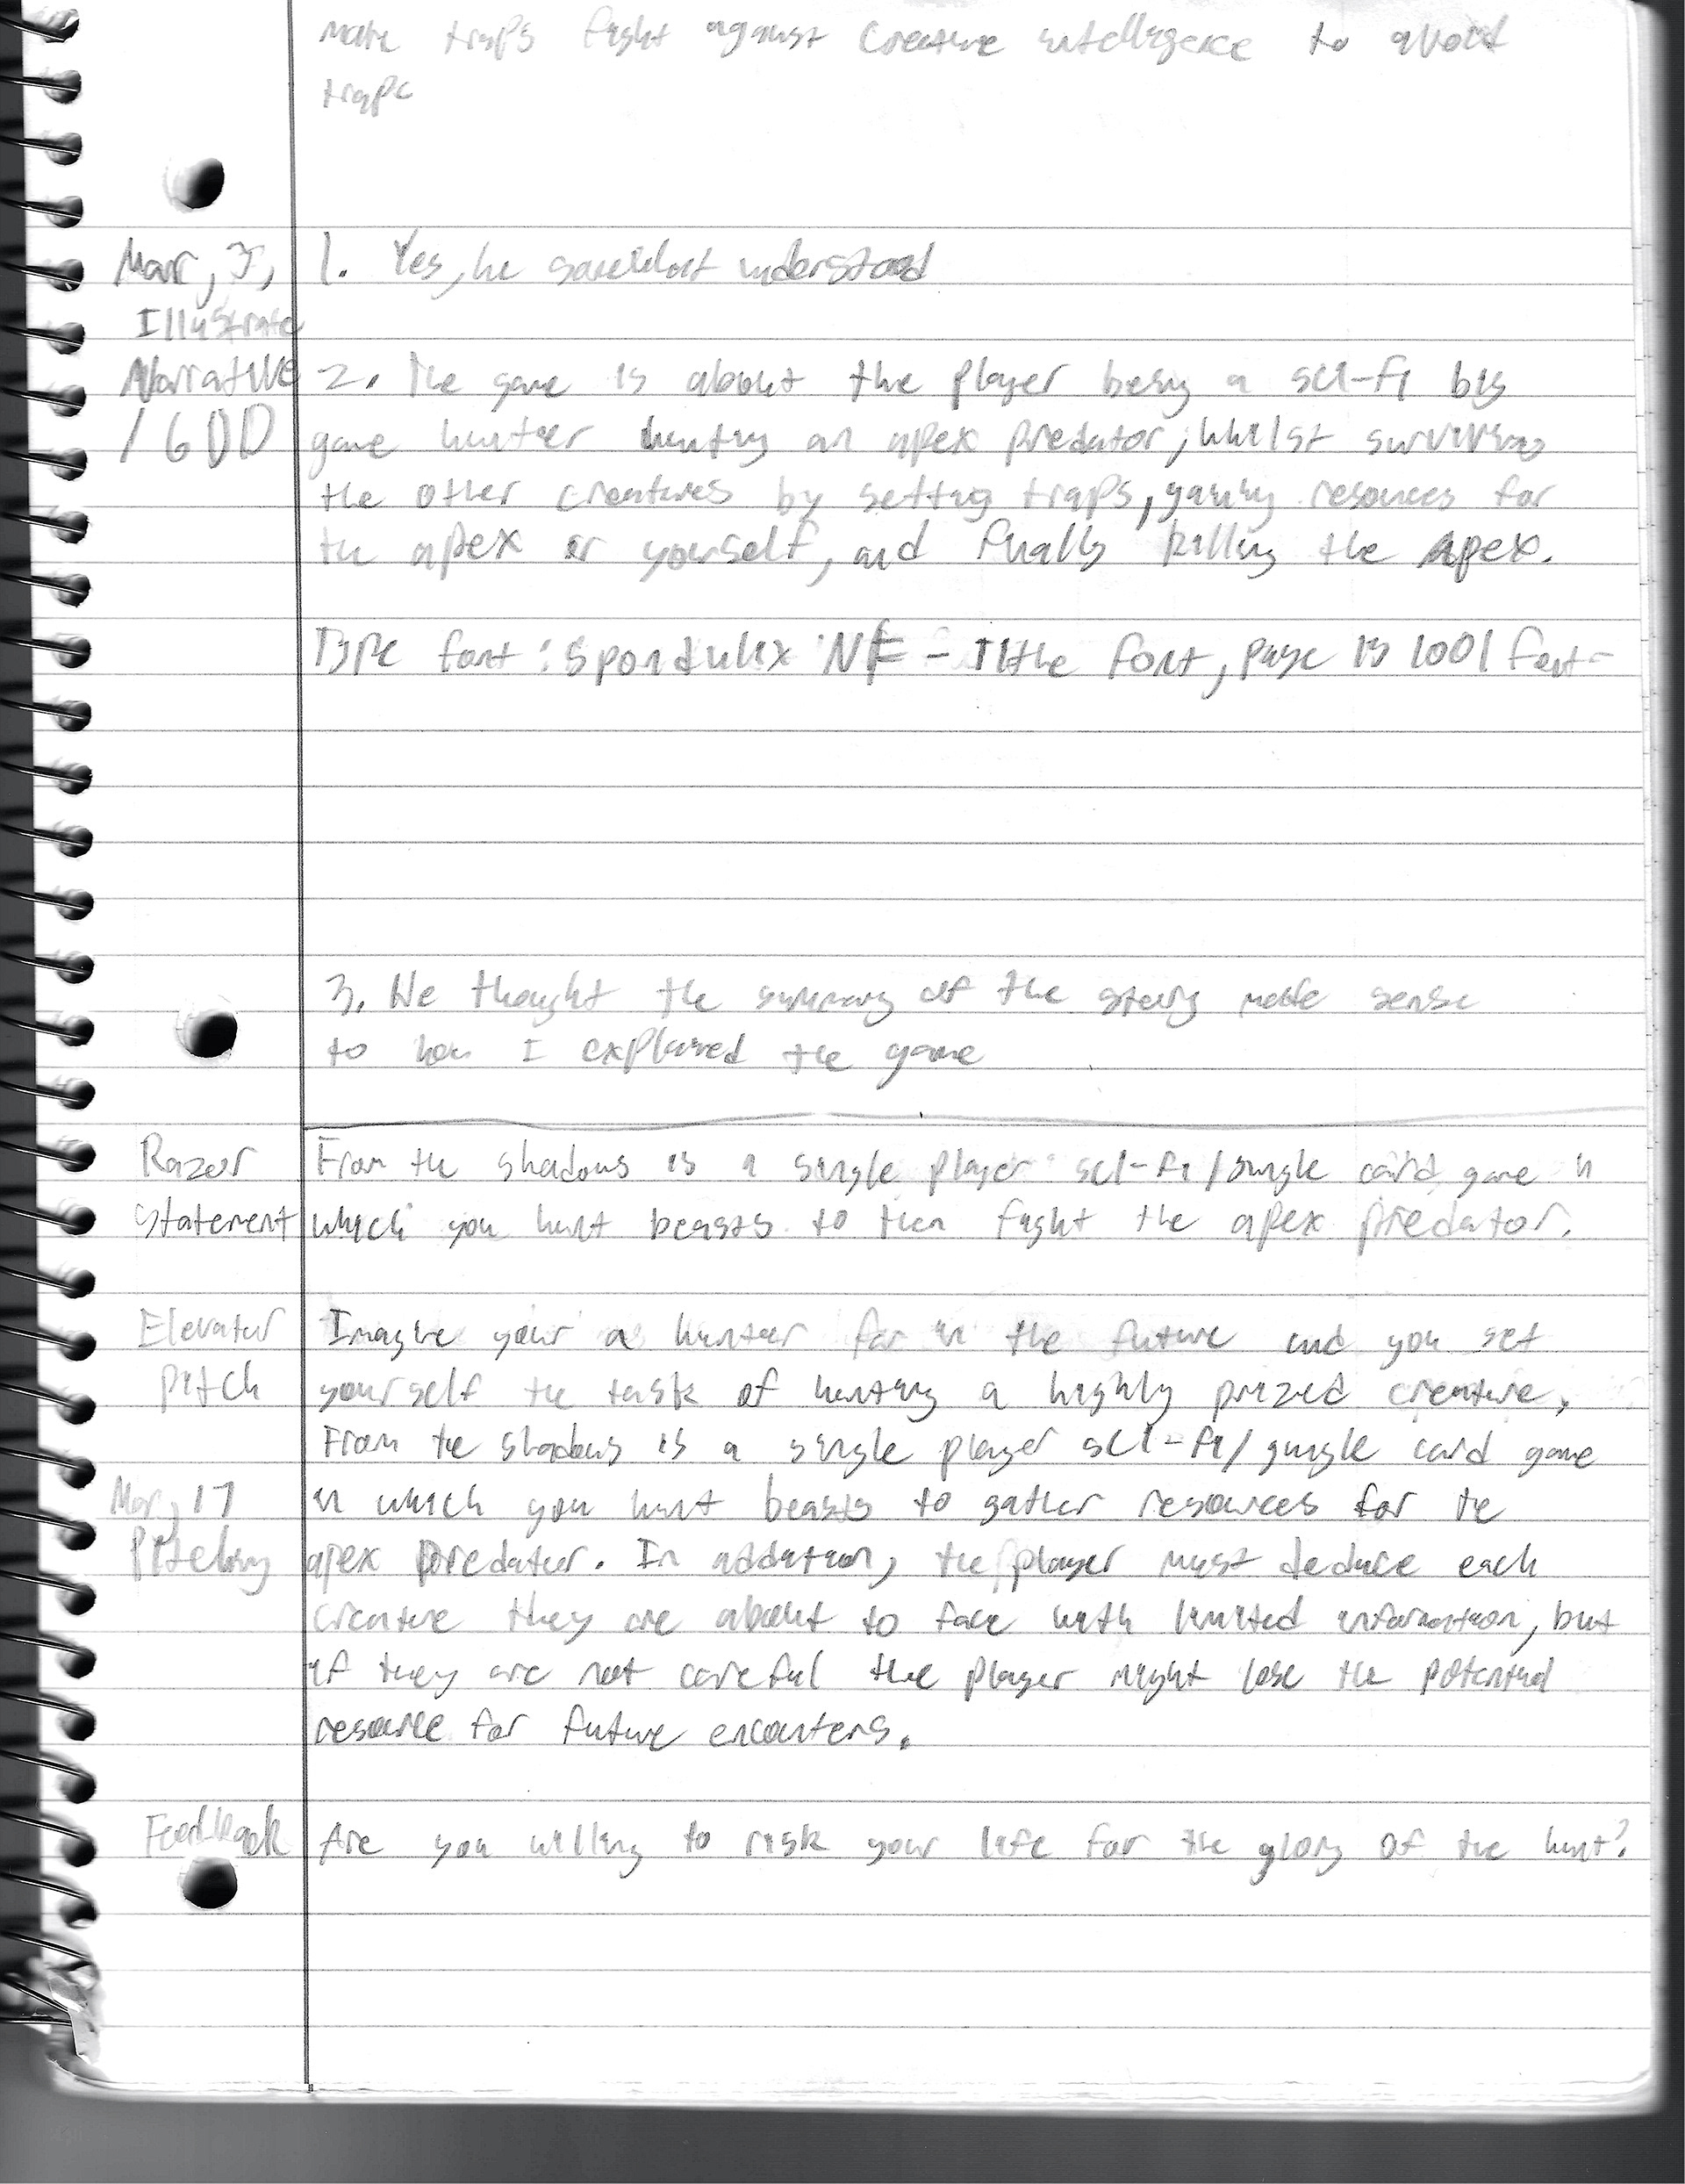 make traps fight against creature intelligence to avoid
traps
Mar, 5, 1. Yes, he somewhat understood
Illustrate
Narrative 2. The game is about the player being a sci-fi big
/ GDD game hunter hunting an apex predator, whilst surviving
the other creatures by setting traps, gaining resources for
the apex or yourself, and finally killing the Apex.
Type font: Spondulix NF - Title font, page is 1001 font-
3. He thought the summary of the story made sense
to how I explained the game
Razor From the shadows is a single player sci-fi/jungle card game in
Statement which you hunt beasts to then fight the apex predator.
Elevator Imagine your a hunter far in the future and you set
pitch yourself the task of hunting a highly prized creature.
From the shadows is a single player sci-fi/jungle card game
Mar, 17 in which you hunt beasts to gather resources for the
Pitching apex predator. In addition, the player must deduce each
creature they are about to face with limited information, but
if they are not careful the player might lose the potential
resource for future encounters.
Feedback Are you willing to risk your life for the glory of the hunt?